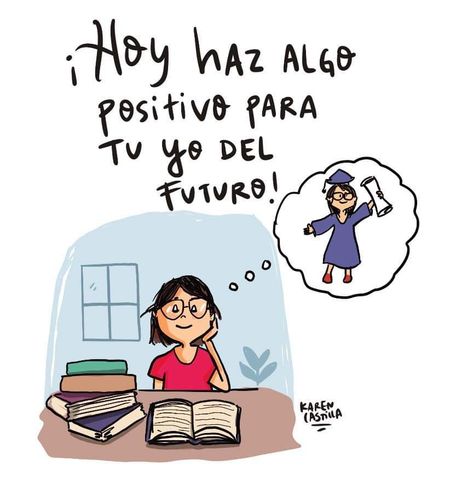 ¡Hoy haz algo
positivo para
tu yo del
futuro!
Karen
Castilla